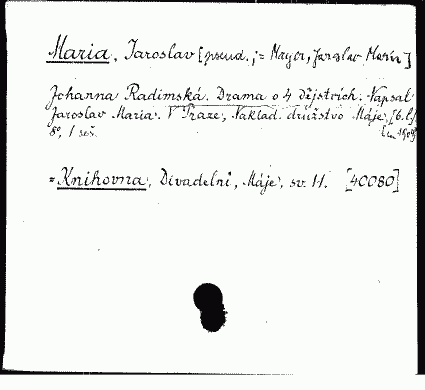 Maria, Jaroslav [pseud.; = Mayer, Jaroslav Maria]
Johanna Radimská. Drama o 4 dějstvích. Napsal
Jaroslav Maria. V Praze, Náklad. družstvo Máje, [b. l.]
8°, 1 seš.
= Knihovna, Divadelní, Máje, sv. 11. [40080]